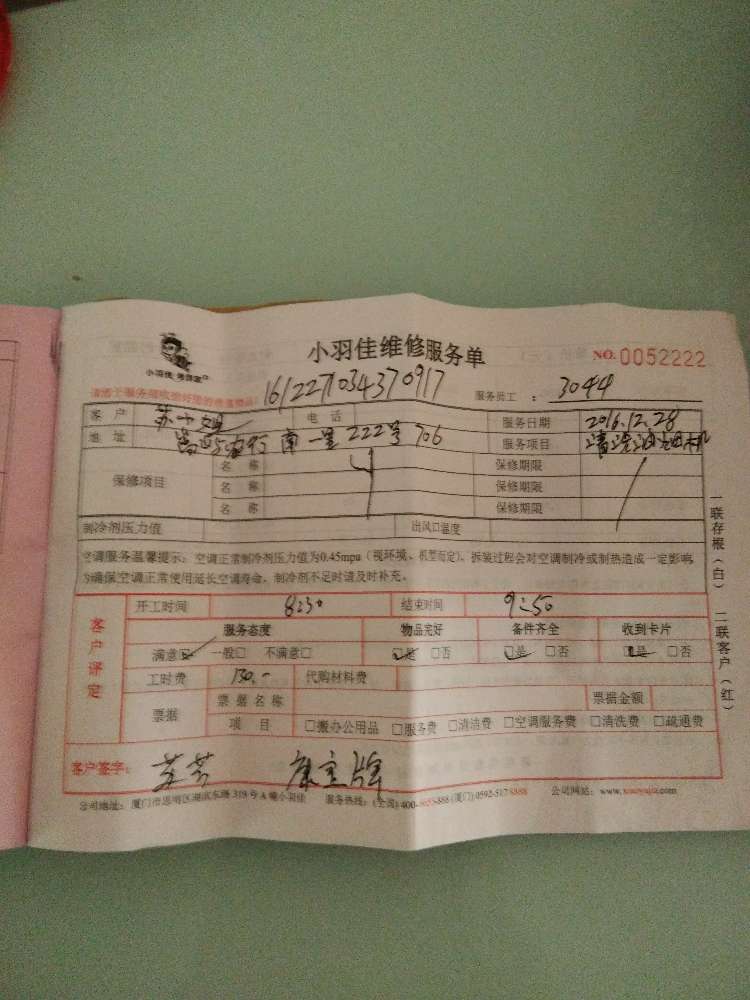 小羽佳维修服务单
NO. 0052222
小羽佳
1612271034370917
服务员工 : 3044
客户 苏小姐 电话 服务日期 2016.12.28
地址 南一里222号706 服务项目 清洗油烟机
保修项目 名称 保修期限
名称 保修期限
名称 保修期限
制冷剂压力值 出风口温度
空调服务温馨提示：空调正常制冷剂压力值为0.45mpa（视环境、机型而定）。拆装过程会对空调制冷或制热造成一定影响,
为确保空调正常使用延长空调寿命，制冷剂不足时请及时补充。
客户评定
开工时间 8:30 结束时间 9:50
服务态度 物品完好 备件齐全 收到卡片
满意☑ 一般□ 不满意□ ☑是 □否 ☑是 □否 ☑是 □否
工时费 130.- 代购材料费
票据 票据名称 票据金额
项目 □搬办公用品 □服务费 □清洁费 □空调服务费 □清洗费 □疏通费
客户签字： 康宝牌
公司地址：厦门市思明区湖滨东路319号A幢小羽佳 服务热线：(全国)400-6658-888 (厦门)0592-5178888 公司网站：www.xiaoyujia.com
一联存根（白） 二联客户（红）